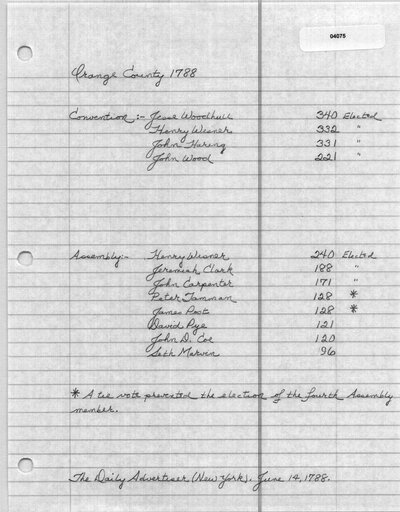 04075
Orange County 1788
Convention :- Jesse Woodhull 340 Elected
Henry Wisner 332 "
John Haring 331 "
John Wood 221 "
Assembly:- Henry Wisner 240 Elected
Jeremiah Clark 188 "
John Carpenter 171 "
Peter Tamman 128 *
James Post 128 *
David Pye 121
John D. Coe 120
Seth Marvin 96
* A tie vote prevented the election of the fourth Assembly
member.
The Daily Advertiser (New York). June 14, 1788.